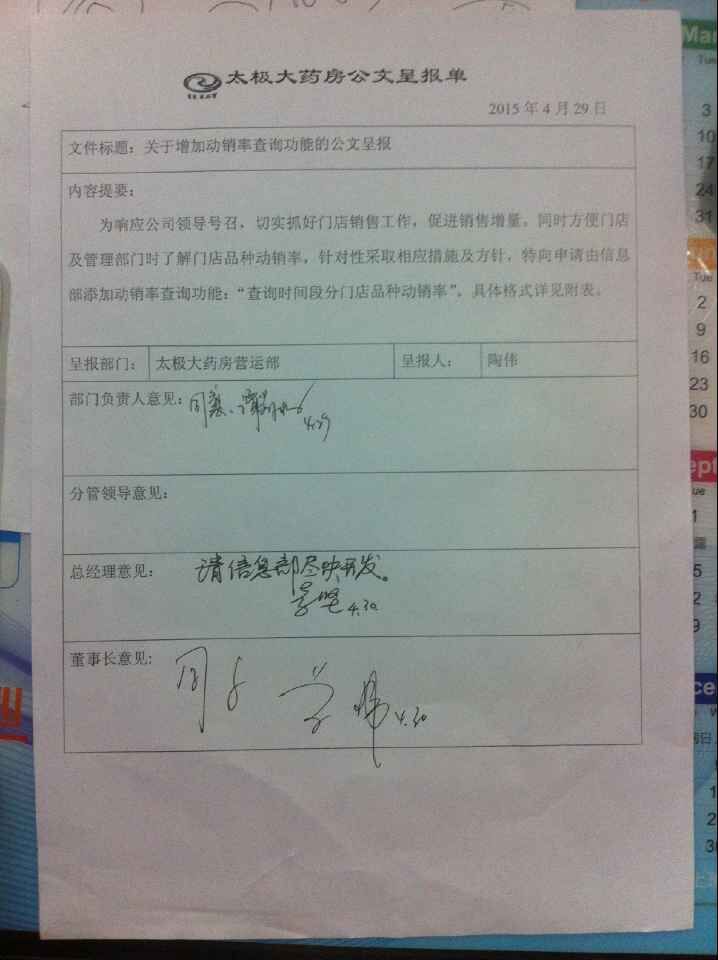 太极大药房公文呈报单
2015年4月29日
文件标题：关于增加动销率查询功能的公文呈报
内容提要：
为响应公司领导号召，切实抓好门店销售工作，促进销售增量。同时方便门店
及管理部门时了解门店品种动销率，针对性采取相应措施及方针，特向申请由信息
部添加动销率查询功能：“查询时间段分门店品种动销率”，具体格式详见附表。
呈报部门： 太极大药房营运部 呈报人： 陶伟
部门负责人意见：同意、 4.29
分管领导意见：
总经理意见： 请信息部尽快开发。
4.30
董事长意见： 同意 4.30
Mar
Tue
3
10
17
24
31
Tue
2
9
16
23
30
ept
ue
1
5
2
9